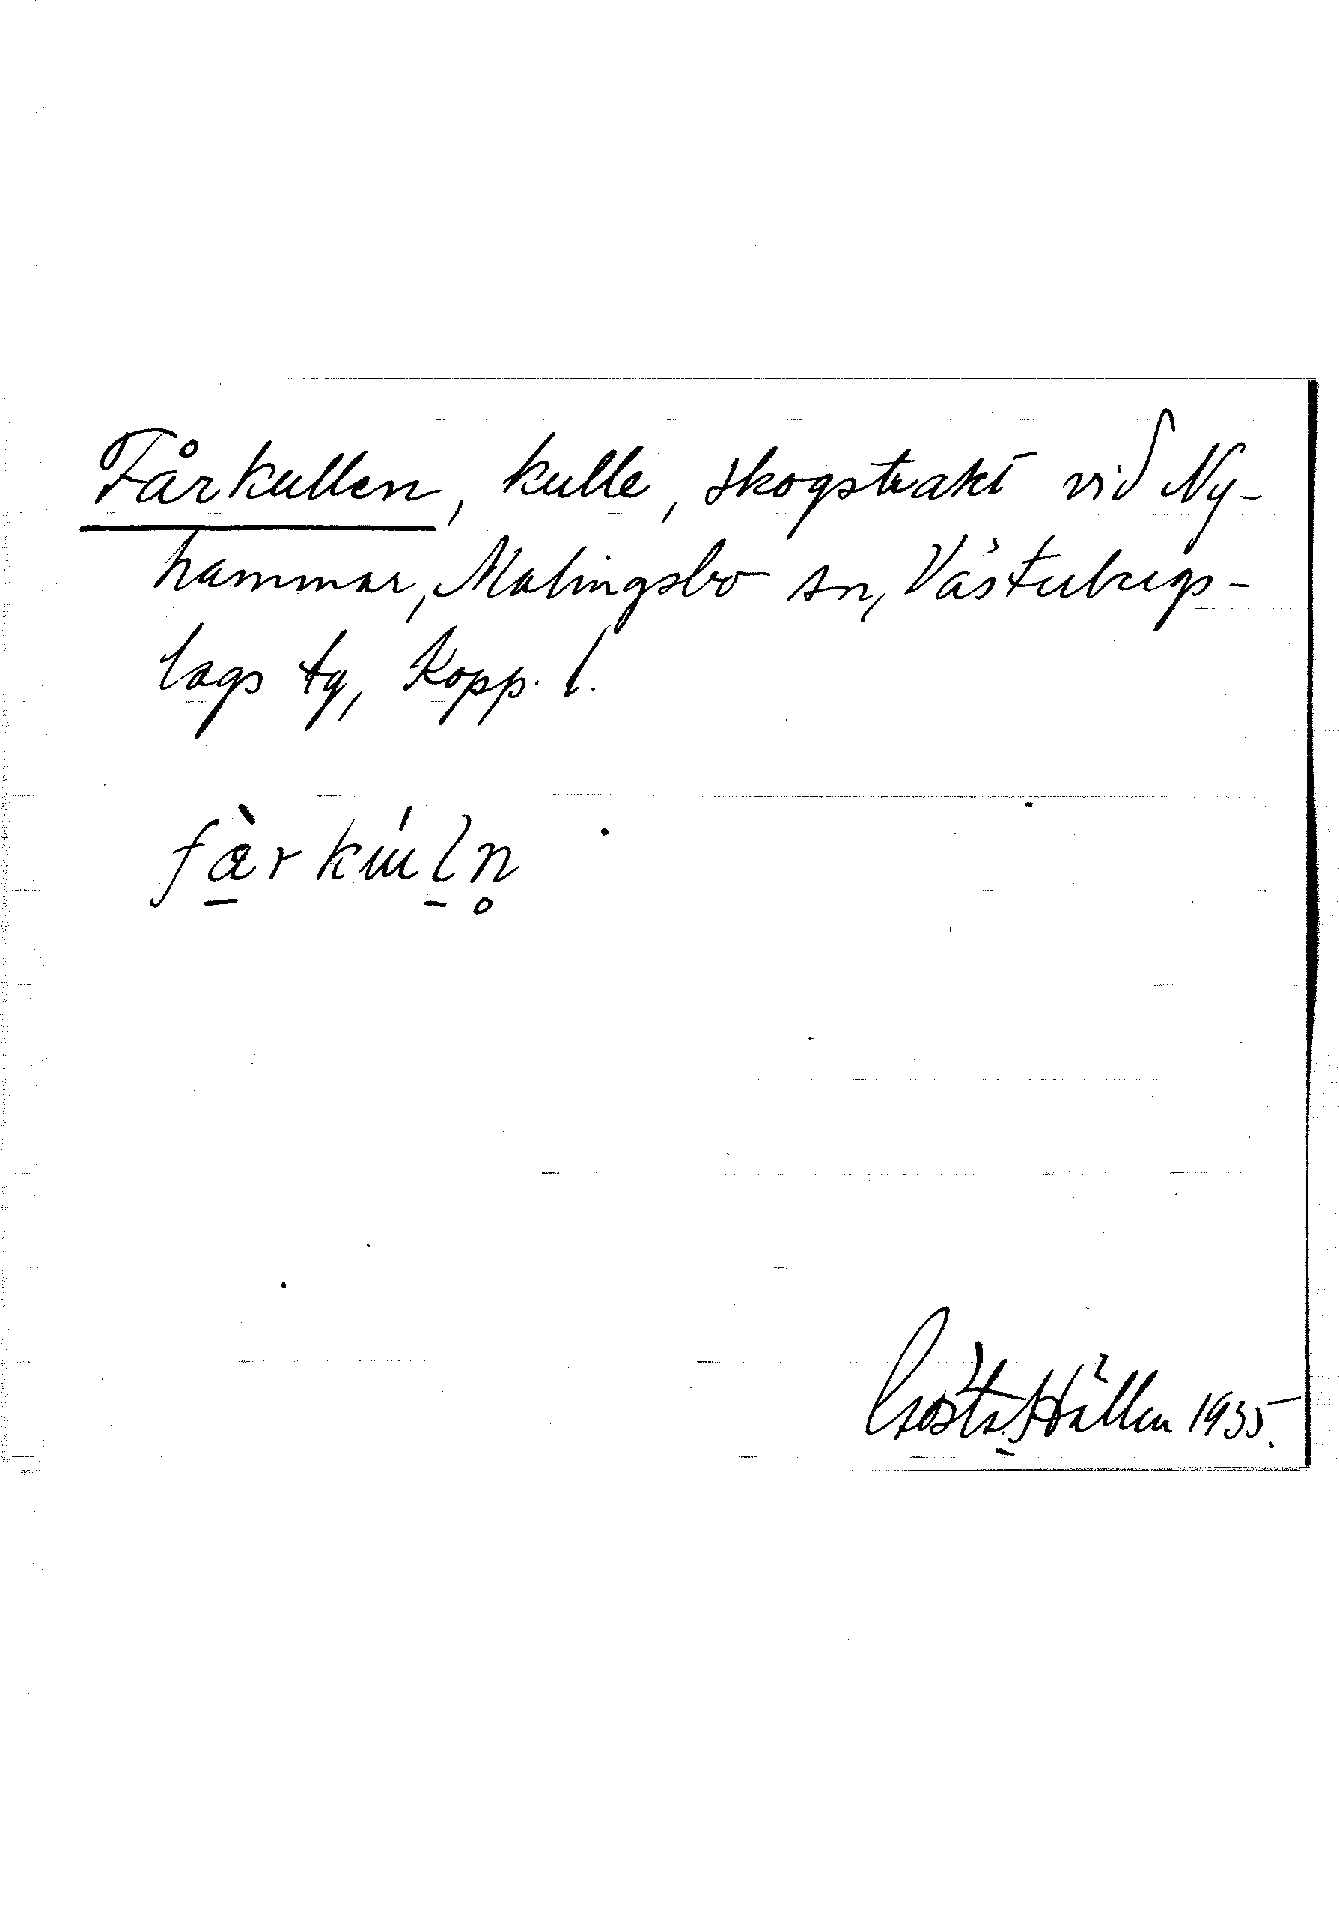 Fårkullen, kulle, skogstrakt vid Ny-
hammar, Malingsbo sn, Västerbergs-
lags tg, Kopp. l.
fæ̀rkúln̥
Gösta Hällen 1935.